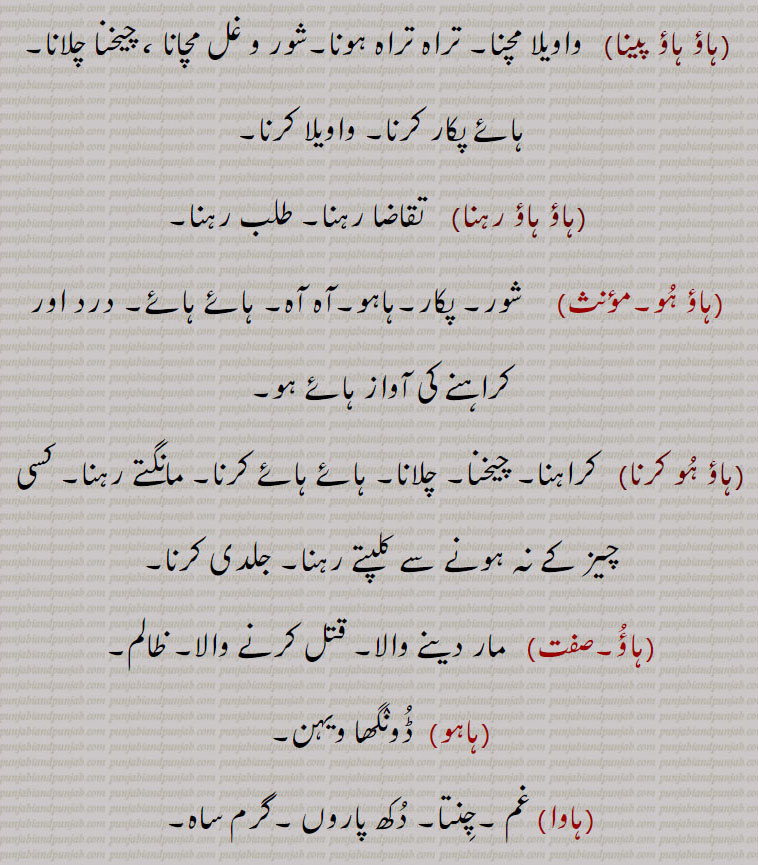 (ہاؤ ہاؤ پینا) واویلا مچنا۔ تراہ تراہ ہونا۔شور و غل مچانا ، چیخنا چلانا۔
ہائے پکار کرنا۔ واویلا کرنا۔
(ہاؤ ہاؤ رہنا) تقاضا رہنا۔ طلب رہنا۔
(ہاؤ ہُو۔مؤنث) شور۔ پکار۔ہاہو۔آہ آہ۔ ہائے ہائے۔ درد اور
کراہنے کی آواز ہائے ہو۔
(ہاؤ ہُو کرنا) کراہنا۔ چیخنا۔ چلانا۔ ہائے ہائے کرنا۔ مانگتے رہنا۔ کسی
چیز کے نہ ہونے سے کلپتے رہنا۔ جلدی کرنا۔
(ہاؤُ۔صفت) مار دینے والا۔ قتل کرنے والا۔ ظالم۔
(ہاہو) ڈُونگھا ویہن۔
(ہاوا) غم ۔چِنتا۔ دُکھ پاروں ۔گرم ساہ۔